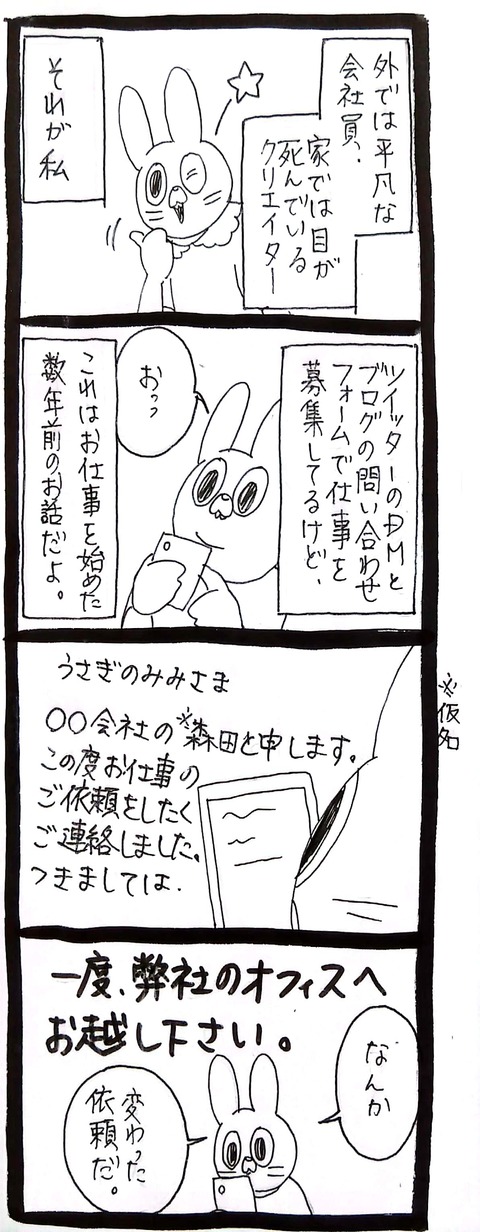 外では平凡な
会社員、
家では目が
死んでいる
クリエイター
それが私
ツイッターのDMと
ブログの問い合わせ
フォームで仕事を
募集してるけど、
おっ
これはお仕事を始めた
数年前のお話だよ。
うさぎのみみさま
○○会社の※森田と申します。
※仮名
この度お仕事の
ご依頼をしたく
ご連絡しました。
つきましては、
一度、弊社のオフィスへ
お越し下さい。
なんか
変わった
依頼だ。